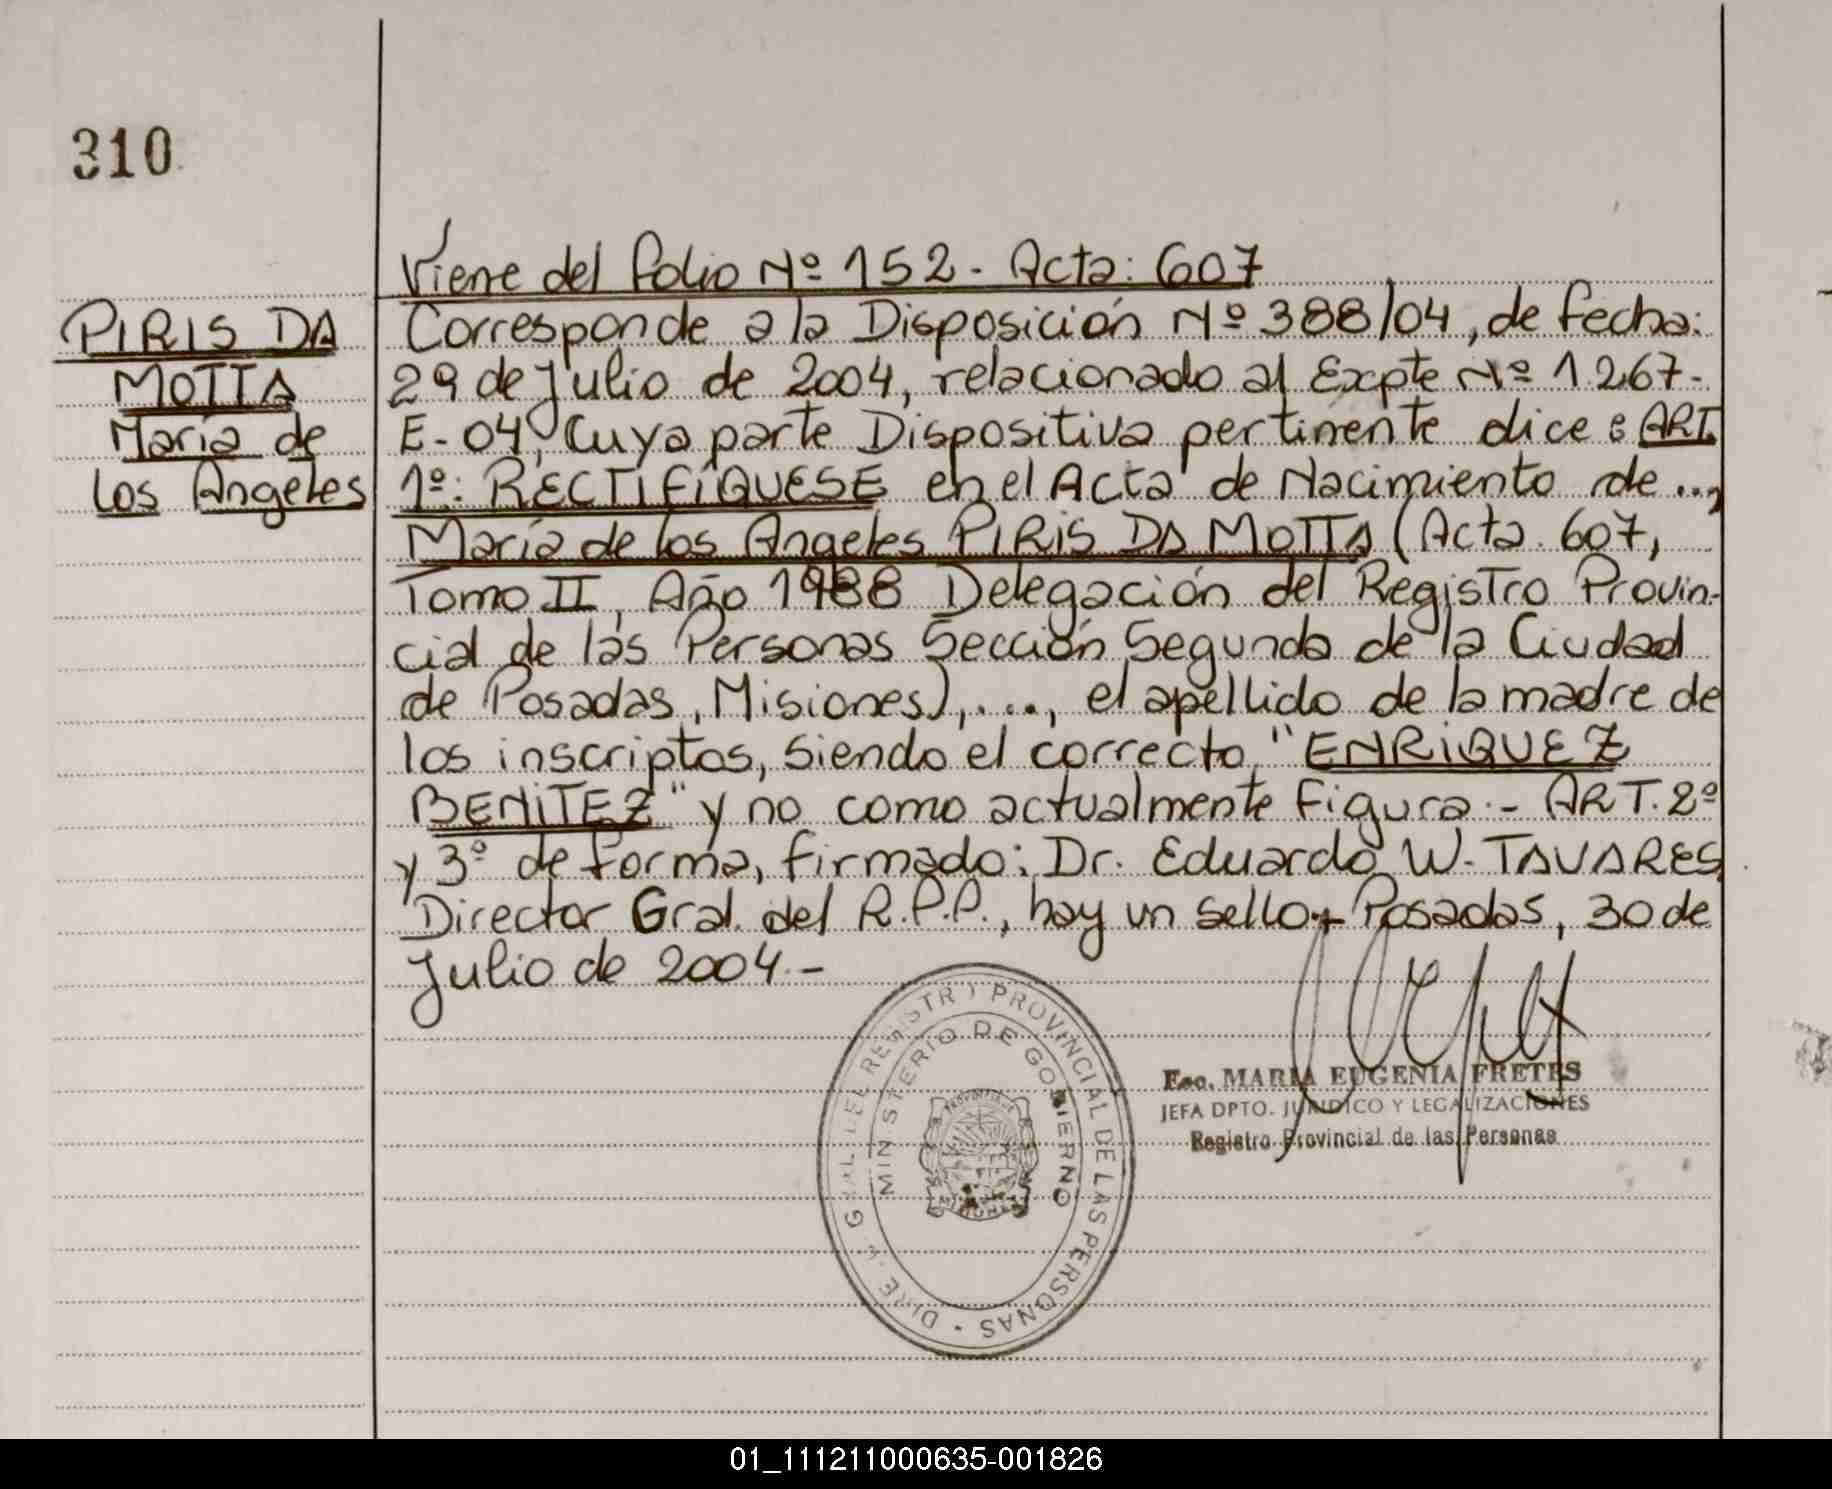 310
PIRIS DA
MOTTA
María de
los Angeles
Viene del folio Nº 152 - Acta: 607
Corresponde a la Disposición Nº 388/04, de fecha:
29 de Julio de 2004, relacionado al Expte Nº 1.267-
E-04, Cuya parte Dispositiva pertinente dice: ART.
1º: RECTIFÍQUESE en el Acta de Nacimiento de ...,
María de los Angeles PIRIS DA MOTTA (Acta 607,
Tomo II, Año 1988 Delegación del Registro Provin-
cial de las Personas Sección Segunda de la Ciudad
de Posadas, Misiones), ...., el apellido de la madre de
los inscriptos, siendo el correcto "ENRIQUEZ
BENITEZ" y no como actualmente figura.- ART. 2º
y 3º de forma, firmado: Dr. Eduardo W. TAVARES
Director Gral. del R.P.P., hay un sello.- Posadas, 30 de
Julio de 2004.-
REGISTRO PROVINCIAL DE LAS PERSONAS
MINISTERIO DE GOBIERNO
Esc. MARIA EUGENIA FRETES
JEFA DPTO. JURIDICO Y LEGALIZACIONES
Registro Provincial de las Personas
01_111211000635-001826